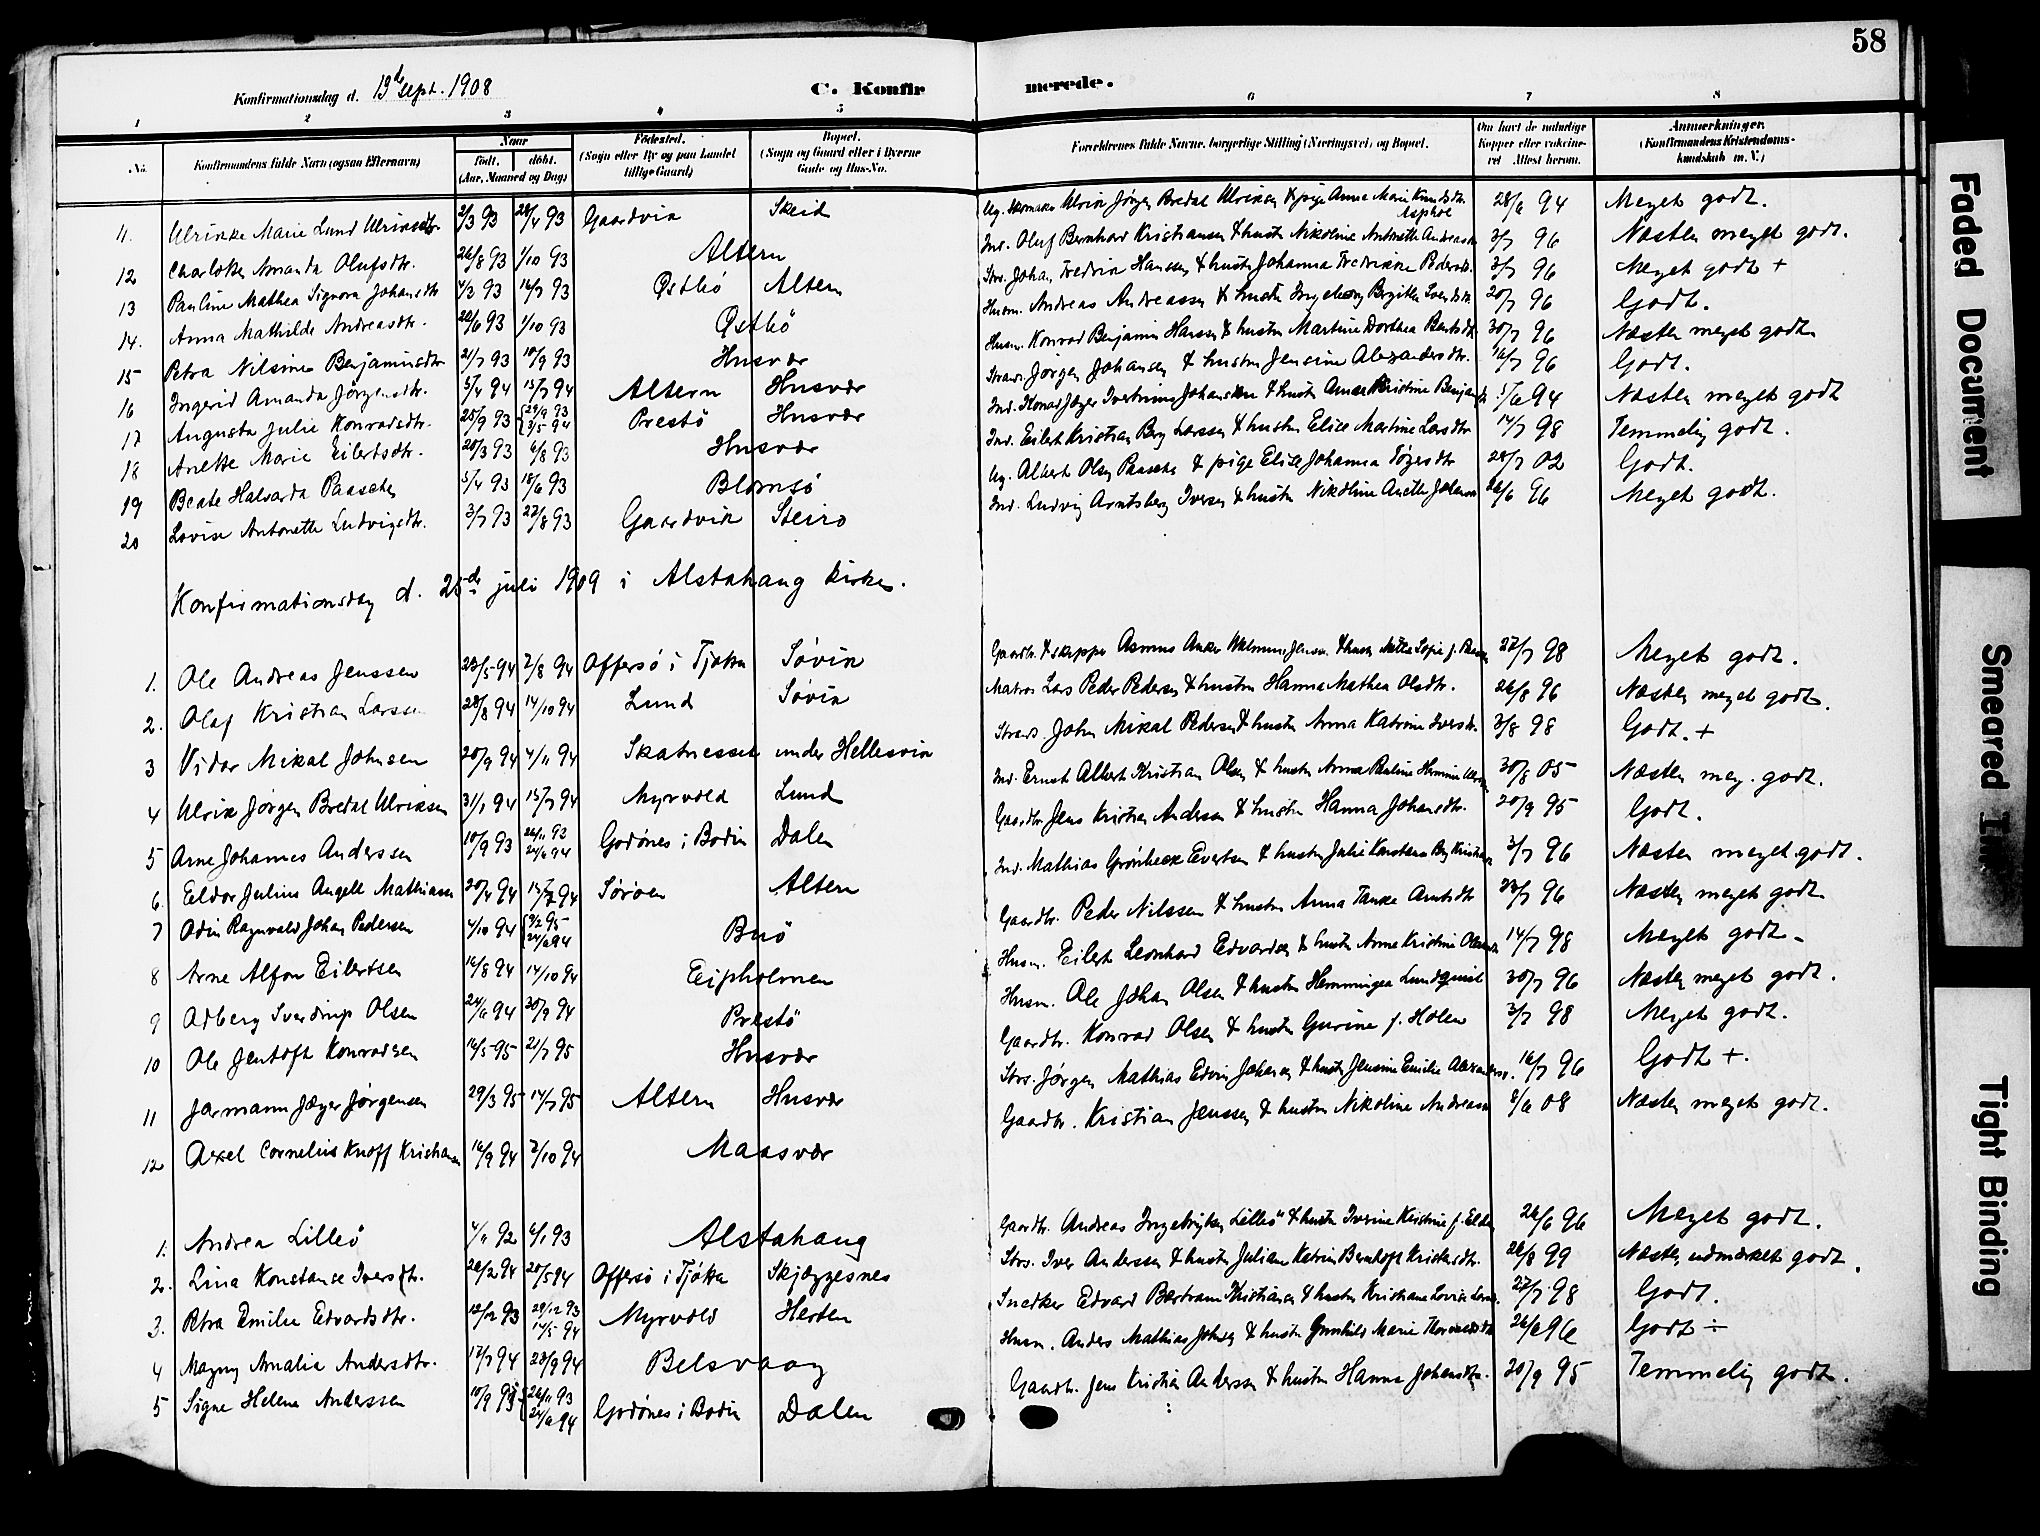 58
Konfirmationsdag d. 13de sept. 1908 C. Konfir merede.
1 2 3 4 5 6 7 8
No. Konfirmandens fulde Navn (ogsaa Efternavn) Naar født. døbt. (Aar, Maaned og Dag) Fødested. (Sogn eller By og paa Landet tillige Gaard) Bopæl. (Sogn og Gaard eller i Byerne Gade og Hus-No. Forældrenes fulde Navne, borgerlige Stilling (Næringsvei) og Bopæl. Om havt de naturlige Kopper eller vakcineret. Attest herom. Anmerkninger. (Konfirmandens Kristendomskundskab m. V.)
11. Ulrikke Marie Lund Ulriksdtr. 2/3 93 28/4 93 Gaardvik Skeid Ug. Ulrik Jørgen Bredal Ulriksen & pige Anna Marie Knudsdtr. 28/6 94 Meget godt.
12 Charlotte Amanda Olufsdtr. 26/8 93 1/10 93 Altern Ind. Oluf Bernhard Kristiansen & hustru Nikoline Antonette Andreasdtr 3/7 96 Næsten meget godt.
13 Pauline Mathea Signora Johansdtr 4/3 93 16/7 93 Østbö Altern Strs. Johan Fredrik Hanssen & hustru Johanna Fredrikke Pedersdtr. 3/7 96 Meget godt +
14. Anna Mathilde Andreasdtr. 22/6 93 1/10 93 Østbö Husm. Andreas Andreassen & hustru Ingeborg Birgitte Iversdtr 20/7 96 Godt.
15 Petra Nilsine Benjaminsdtr 21/7 93 10/9 93 Husvær Husm. Konrad Benjamin Hansen & hustru Martine Dorthea Bentsdtr 30/7 96 Næsten meget godt
16 Ingerid Amanda Jörgensdtr. 5/4 94 15/7 94 Altern Husvær Strs. Jørgen Johansen & hustru Jensine Alexandersdtr. 16/7 96 Godt.
17 Augusta Julie Konradsdtr. 25/9 93 {29/9 93 3/5 94 Prestö Husvær Ind. Konrad Jæger Johansen & hustru Anna Kristine 5/6 94 Næsten meget godt
18 Anette Marie Eilertsdtr. 20/3 93 6/8 93 Husvær Ind. Eilert Kristian Berg Larssen & hustru Elise Martine Larsdtr 14/7 98 Temmelig godt.
19 Beate Halvarda Paasche 5/4 93 18/6 93 Blomsö Ug. Albert Olsen Paasche & pige Elise Johanna 28/7 02 Godt.
20 Lovise Antonette Ludvigsdtr. 3/7 93 27/8 93 Gaardvik Steiro Ind. Ludvig Arntsberg Iversen & hustru Nikoline Anette 26/6 96 Meget godt.
Konfirmationsdag d. 25de juli 1909 i Alstahaug kirke.
1. Ole Andreas Jenssen 23/5 94 2/8 94 Offersö i Tjøtta Søvik Gaardbr. & skipper Asmus Anker & hustru Sofie 27/7 98 Meget godt.
2. Olaf Kristian Larssen 28/8 94 14/10 94 Lund Søvik Matros Lars Peder Pedersen & hustru Hanna Mathea Olsdtr. 26/8 96 Næsten meget godt.
3 Vidar Mikal Johnsen 20/9 94 4/11 94 Skatnesset under Hellesvik Strs. John Mikal Pedersen & hustru Anna Katrine Iversdtr. 3/8 98 Godt. +
4 Ulrik Jørgen Bredal Ulriksen 31/1 94 15/7 94 Myrvold Lund Ind. Ernst Albert Kristian Olsen & hustru Anna Pauline 30/8 05 Næsten meg. godt.
5 Arne Johannes Anderssen 10/9 93 26/11 93 24/6 94 Godönes i Bodin Dalen Gaardbr Jens Kristian Andersen & hustru Hanna Johansdtr. 20/9 95 Godt.
6. Eldor Julius Angell Mathiasen 20/4 94 15/7 94 Sørøen Altern Ind. Mathias Grönbeck Evertsen & hustru Julie Konstanse 3/7 96 Næsten meget godt.
7 Odin Ragnvald Johan Pedersen 4/10 94 {3/2 95 24/6 94 Buö Gaardbr. Peder Nilssen & hustru Anna Tanke Arntsdtr 23/7 96 Næsten meget godt
8 Arne Alfon Eilertsen 16/8 94 14/10 94 Eipholmen Husm. Eilert Leonhard Edvardsen & hustru Anne Kristine 14/7 98 Meget godt.
9 Adberg Sverdrup Olsen 24/6 94 30/9 94 Prestö Husm. Ole Johan Olsen & hustru Hemmingea Lundquist 30/7 96 Næsten meget godt.
10 Ole Jentoft Konradsen 16/5 95 21/7 95 Husvær Gaardbr. Konrad Olsen & hustru Gurine f. Holen 3/7 98 Meget godt.
11 Jarmann Jæger Jørgensen 29/3 95 14/7 95 Altern Husvær Strs. Jørgen Mathias Edvin Johansen & hustru Jensine Emilie 16/7 96 Godt +.
12 Axel Cornelius Knoff Kristiansen 16/9 94 7/10 94 Maasvær Gaardbr. Kristian Jenssen & hustru Nikoline Andreasen 8/6 08 Næsten meget godt.
1. Andrea Lilleö 4/11 92 6/1 93 Alstahaug Gaardbr. Andreas Ingebrigtsen Lilleö & hustru Iverine Kristine f. 26/6 96 Meget godt.
2. Lina Konstanse Iversdtr. 28/2 94 20/5 94 Offersö i Tjøtta Skjæggesnes Strs. Iver Anderssen & hustru Juliane Katrine Bernhoft Kristensdtr. 26/8 99 Næsten udmærket godt.
3. Petra Emilie Edvardsdtr. 12/12 93 28/12 93 14/5 94 Myrvold Hesten Snedker Edvard Bertram Kristiansen & hustru Kristiane Lovise 27/7 98 Godt.
4 Magny Amalia Andersdtr. 17/7 94 23/9 94 Belsvaag Husm. Anders Mathias Johnsen & hustru Gunhild Marie 26/6 96 Godt ÷
5 Signe Helene Anderssen 10/9 93 {26/11 93 24/6 94 Godönes i Bodin Dalen Gaardbr. Jens Kristian Anderssen & hustru Hanna Johansdtr. 20/9 95 Temmelig godt.
Faded Document
Smeared
Tight Binding